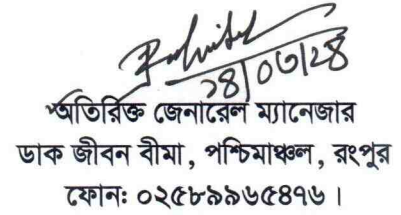 ১৪/০৩/২৪
অতিরিক্ত জেনারেল ম্যানেজার
ডাক জীবন বীমা, পশ্চিমাঞ্চল, রংপুর
ফোনঃ ০২৫৮৯৯৬৫৪৭৬।